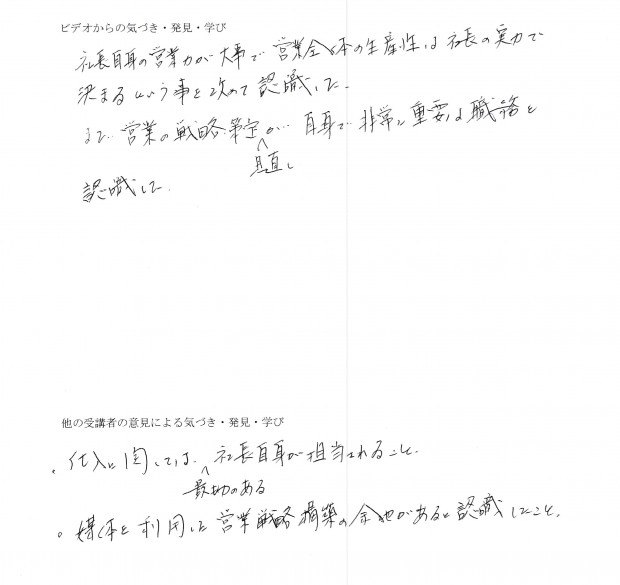 ビデオからの気づき・発見・学び
社長自身の営業力が大事で営業全体の生産性は社長の実力で
決まるという事を改めて認識した.
また 営業の戦略策定が… 自身で非常に重要な職務と
見直し
認識した.
他の受講者の意見による気づき・発見・学び
・仕入に関しては、社長自身が担当されること.
最切のある
○ 媒体を利用した営業戦略構築の余地があると認識したこと.